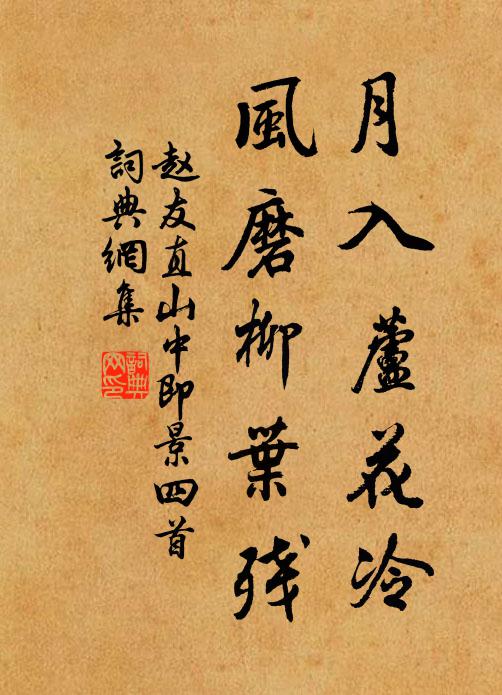 月入蘆花冷
風磨柳葉残
赵友直山中即景四首
詞典網集
詞典网印